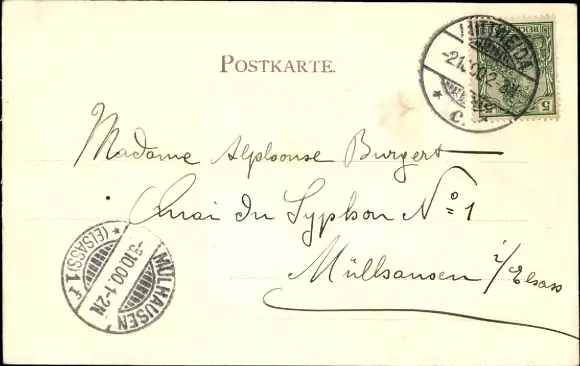 POSTKARTE.
MITTWEIDA
-2.10.00.2-
* c. *
5
REICHSPOST
Madame Alphonse Burgert
Quai du Syphon No 1
Mülhausen i/Elsass
MÜLHAUSEN
-3.10.00.1-2N.
* (ELSASS) 1 f *